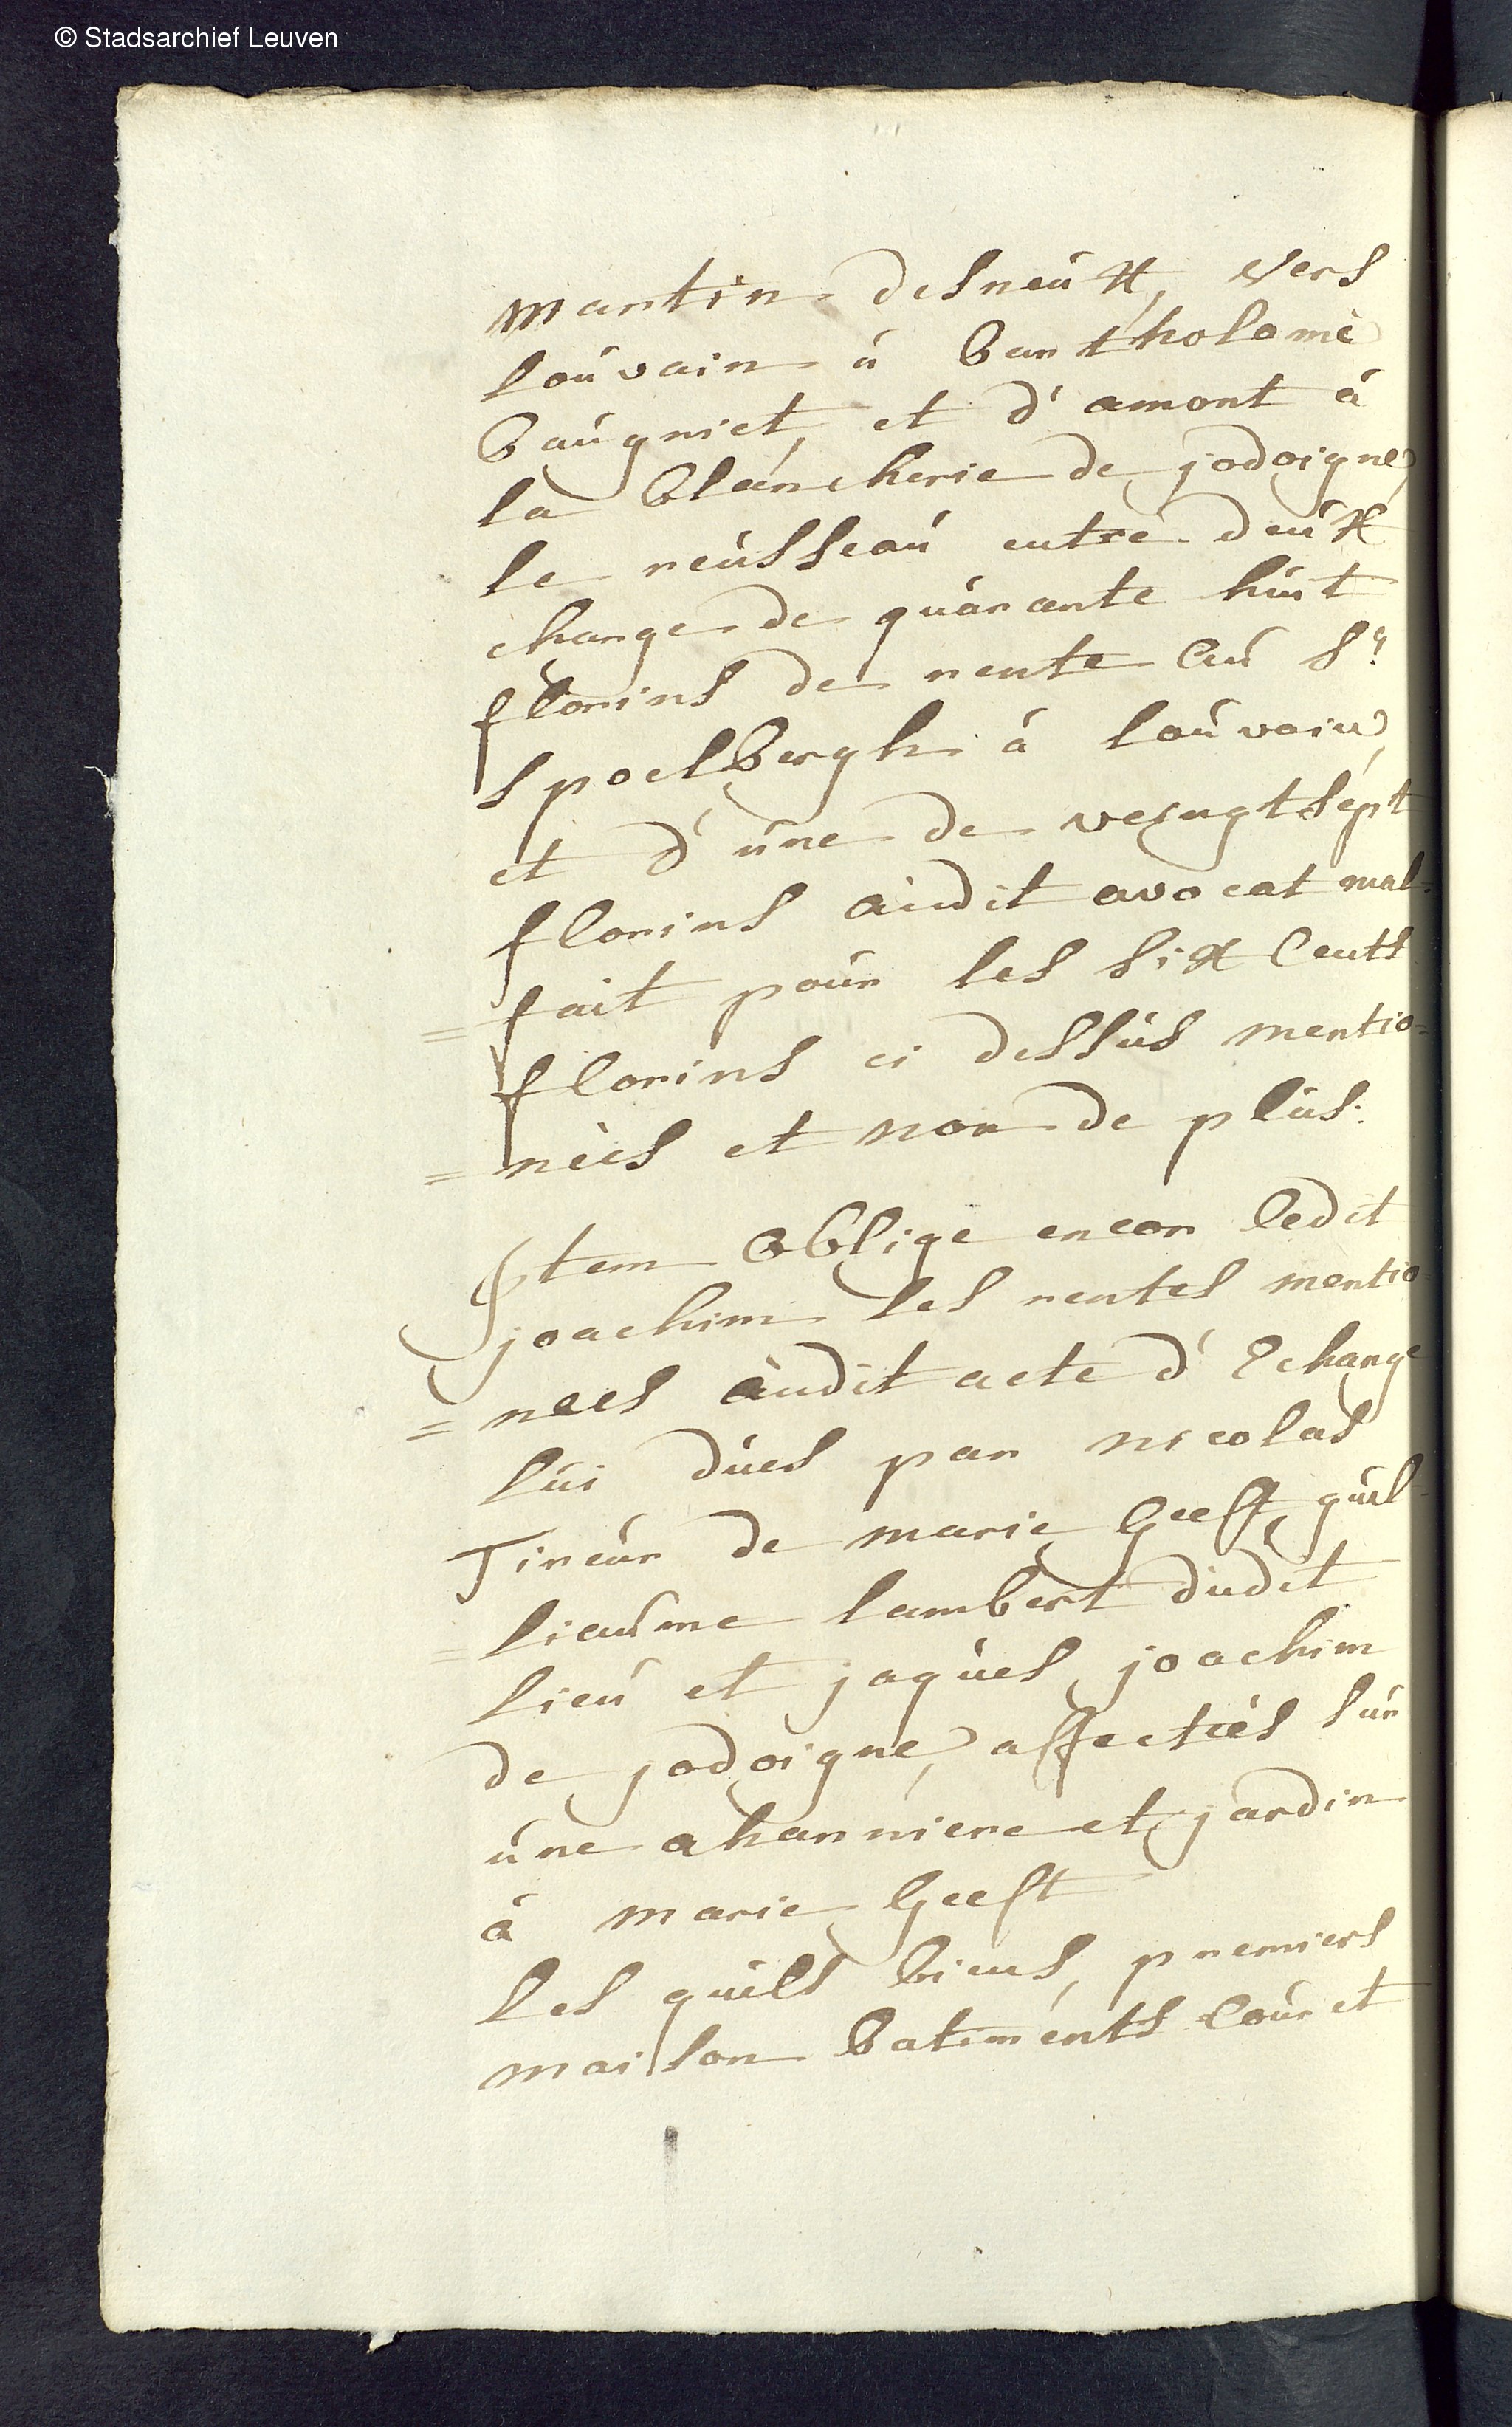 © Stadsarchief Leuven
martin desneúx, vers
loúvain á Bartholomé
Baúgniet, et d'amont á
la Blancherie de jodoigne,
le reússeaú entre deúx
charge de quárante húit
florins de rente aú Sr
Spoelbergh á loúvain,
et d'úne de veingtsépt
florins aúdit avocat mal-
=fait poúr les six cents
florins ci dessús mentio-
=néés et non de plús:
Item oblige encor ledit
joachim les rentes mentio
=nees aúdit acte d'Echange
lúi dúes par nicolas
Tireúr de marie Geest, guil-
=lieaúme lambert dúdit
lieú et jaqúes joachim
de jodoigne, affectiés súr
úne ahanniere et jardin
á marie Geest
les quéls biens, premiers
maison batiménts coúr et